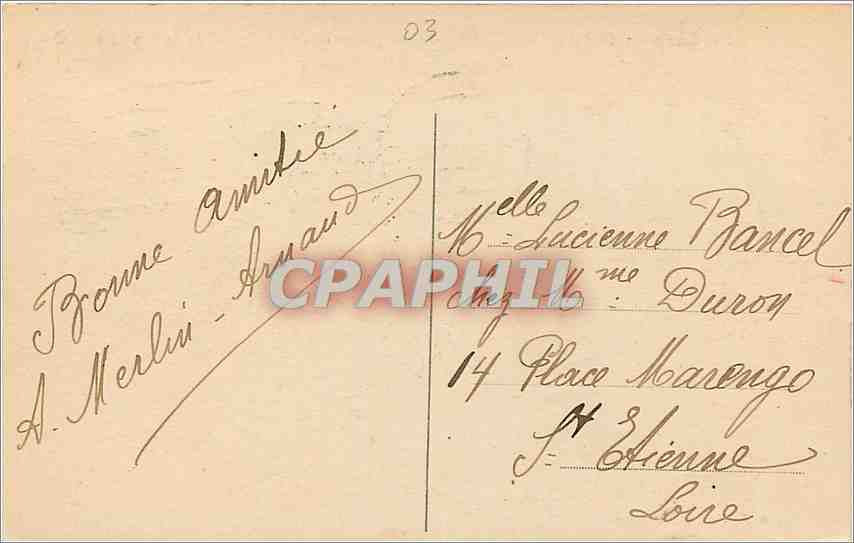 03
Bonne amitié
A. Merlin-Arnaud
CPAPHIL
Melle Lucienne Bancel
Chez Mme Duron
14 Place Marengo
St Etienne
Loire